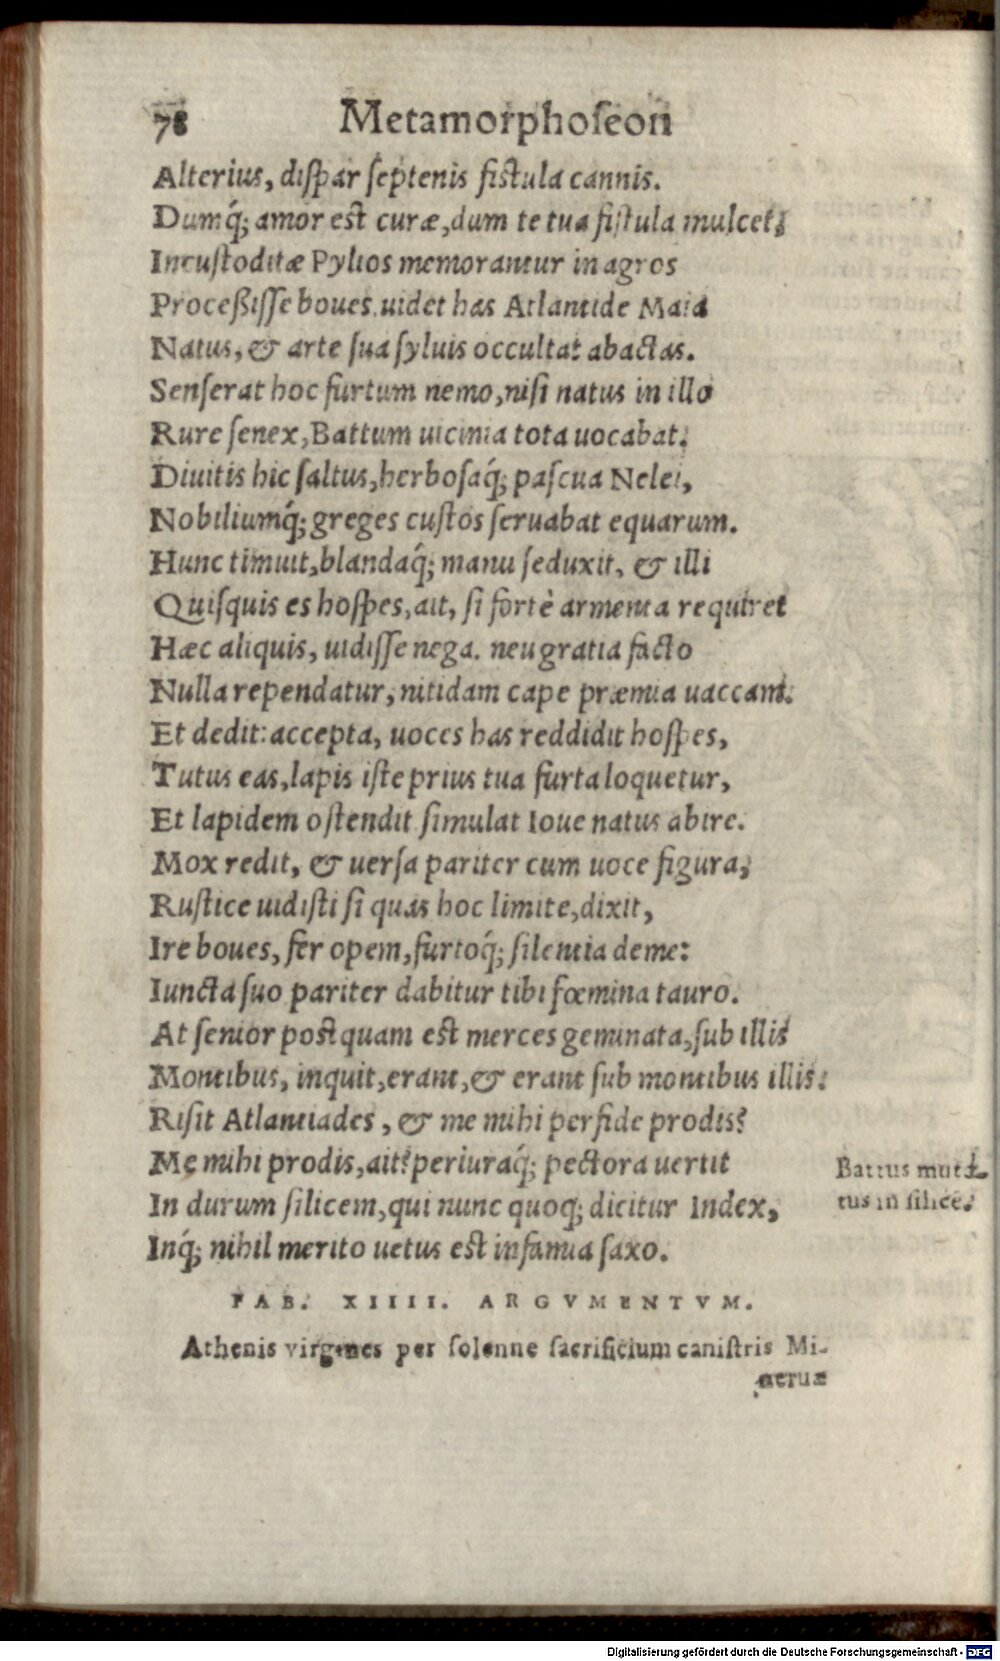 78 Metamorphoſeon
Alterius, diſpar ſeptenis fiſtula cannis.
Dumq́; amor est curæ, dum te tua fiſtula mulcet,
Incuſtoditæ Pylios memorantur in agros
Proceßiſſe boues. uidet has Atlantide Maia
Natus, & arte ſua ſyluis occultat abactas.
Senſerat hoc furtum nemo, niſi natus in illo
Rure ſenex, Battum uicinia tota uocabat.
Diuitis hic ſaltus, herboſaq́; paſcua Nelei,
Nobiliumq́; greges cuſtos ſeruabat equarum.
Hunc timuit, blandaq́; manu ſeduxit, & illi
Quiſquis es hoſpes, ait, ſi fortè armenta requiret
Hæc aliquis, uidiſſe nega. neu gratia facto
Nulla rependatur, nitidam cape præmia uaccam.
Et dedit: accepta, uoces has reddidit hoſpes,
Tutus eas, lapis iſte prius tua furta loquetur,
Et lapidem oſtendit ſimulat Ioue natus abire.
Mox redit, & uerſa pariter cum uoce figura,
Ruſtice uidiſti ſi quas hoc limite, dixit,
Ire boues, fer opem, furtoq́; ſilentia deme:
Iuncta ſuo pariter dabitur tibi fœmina tauro.
At ſenior postquam est merces geminata, ſub illis
Montibus, inquit, erant, & erant ſub montibus illis.
Riſit Atlantiades, & me mihi perfide prodis?
Me mihi prodis, ait? periuraq́; pectora uertit
In durum ſilicem, qui nunc quoq; dicitur Index,
Inq́; nihil merito uetus est infamia ſaxo.
Battus muta-
tus in ſilicē.
FAB. XIIII. ARGVMENTVM.
Athenis virgines per ſolenne ſacrificium caniſtris Mi-
neruæ
Digitalisierung gefördert durch die Deutsche Forschungsgemeinschaft - DFG